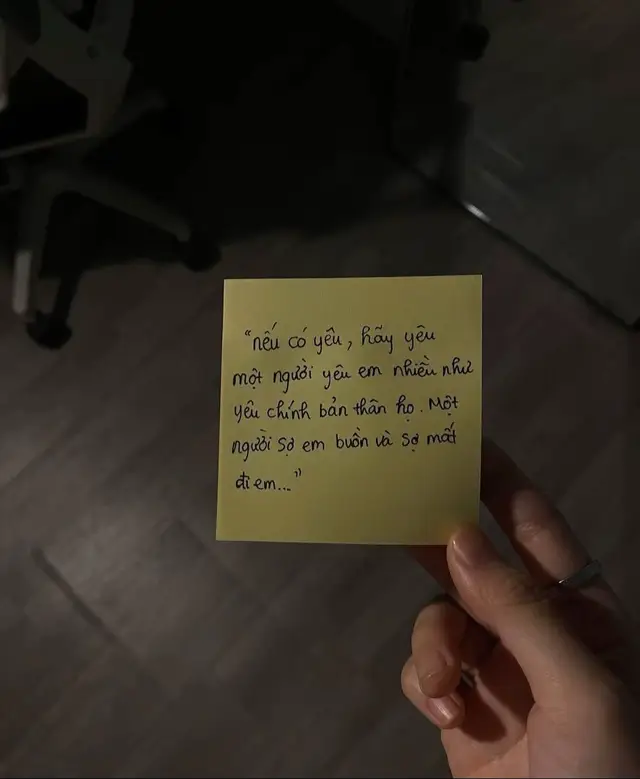 "nếu có yêu, hãy yêu
một người yêu em nhiều như
yêu chính bản thân họ. Một
người sợ em buồn và sợ mất
đi em..."